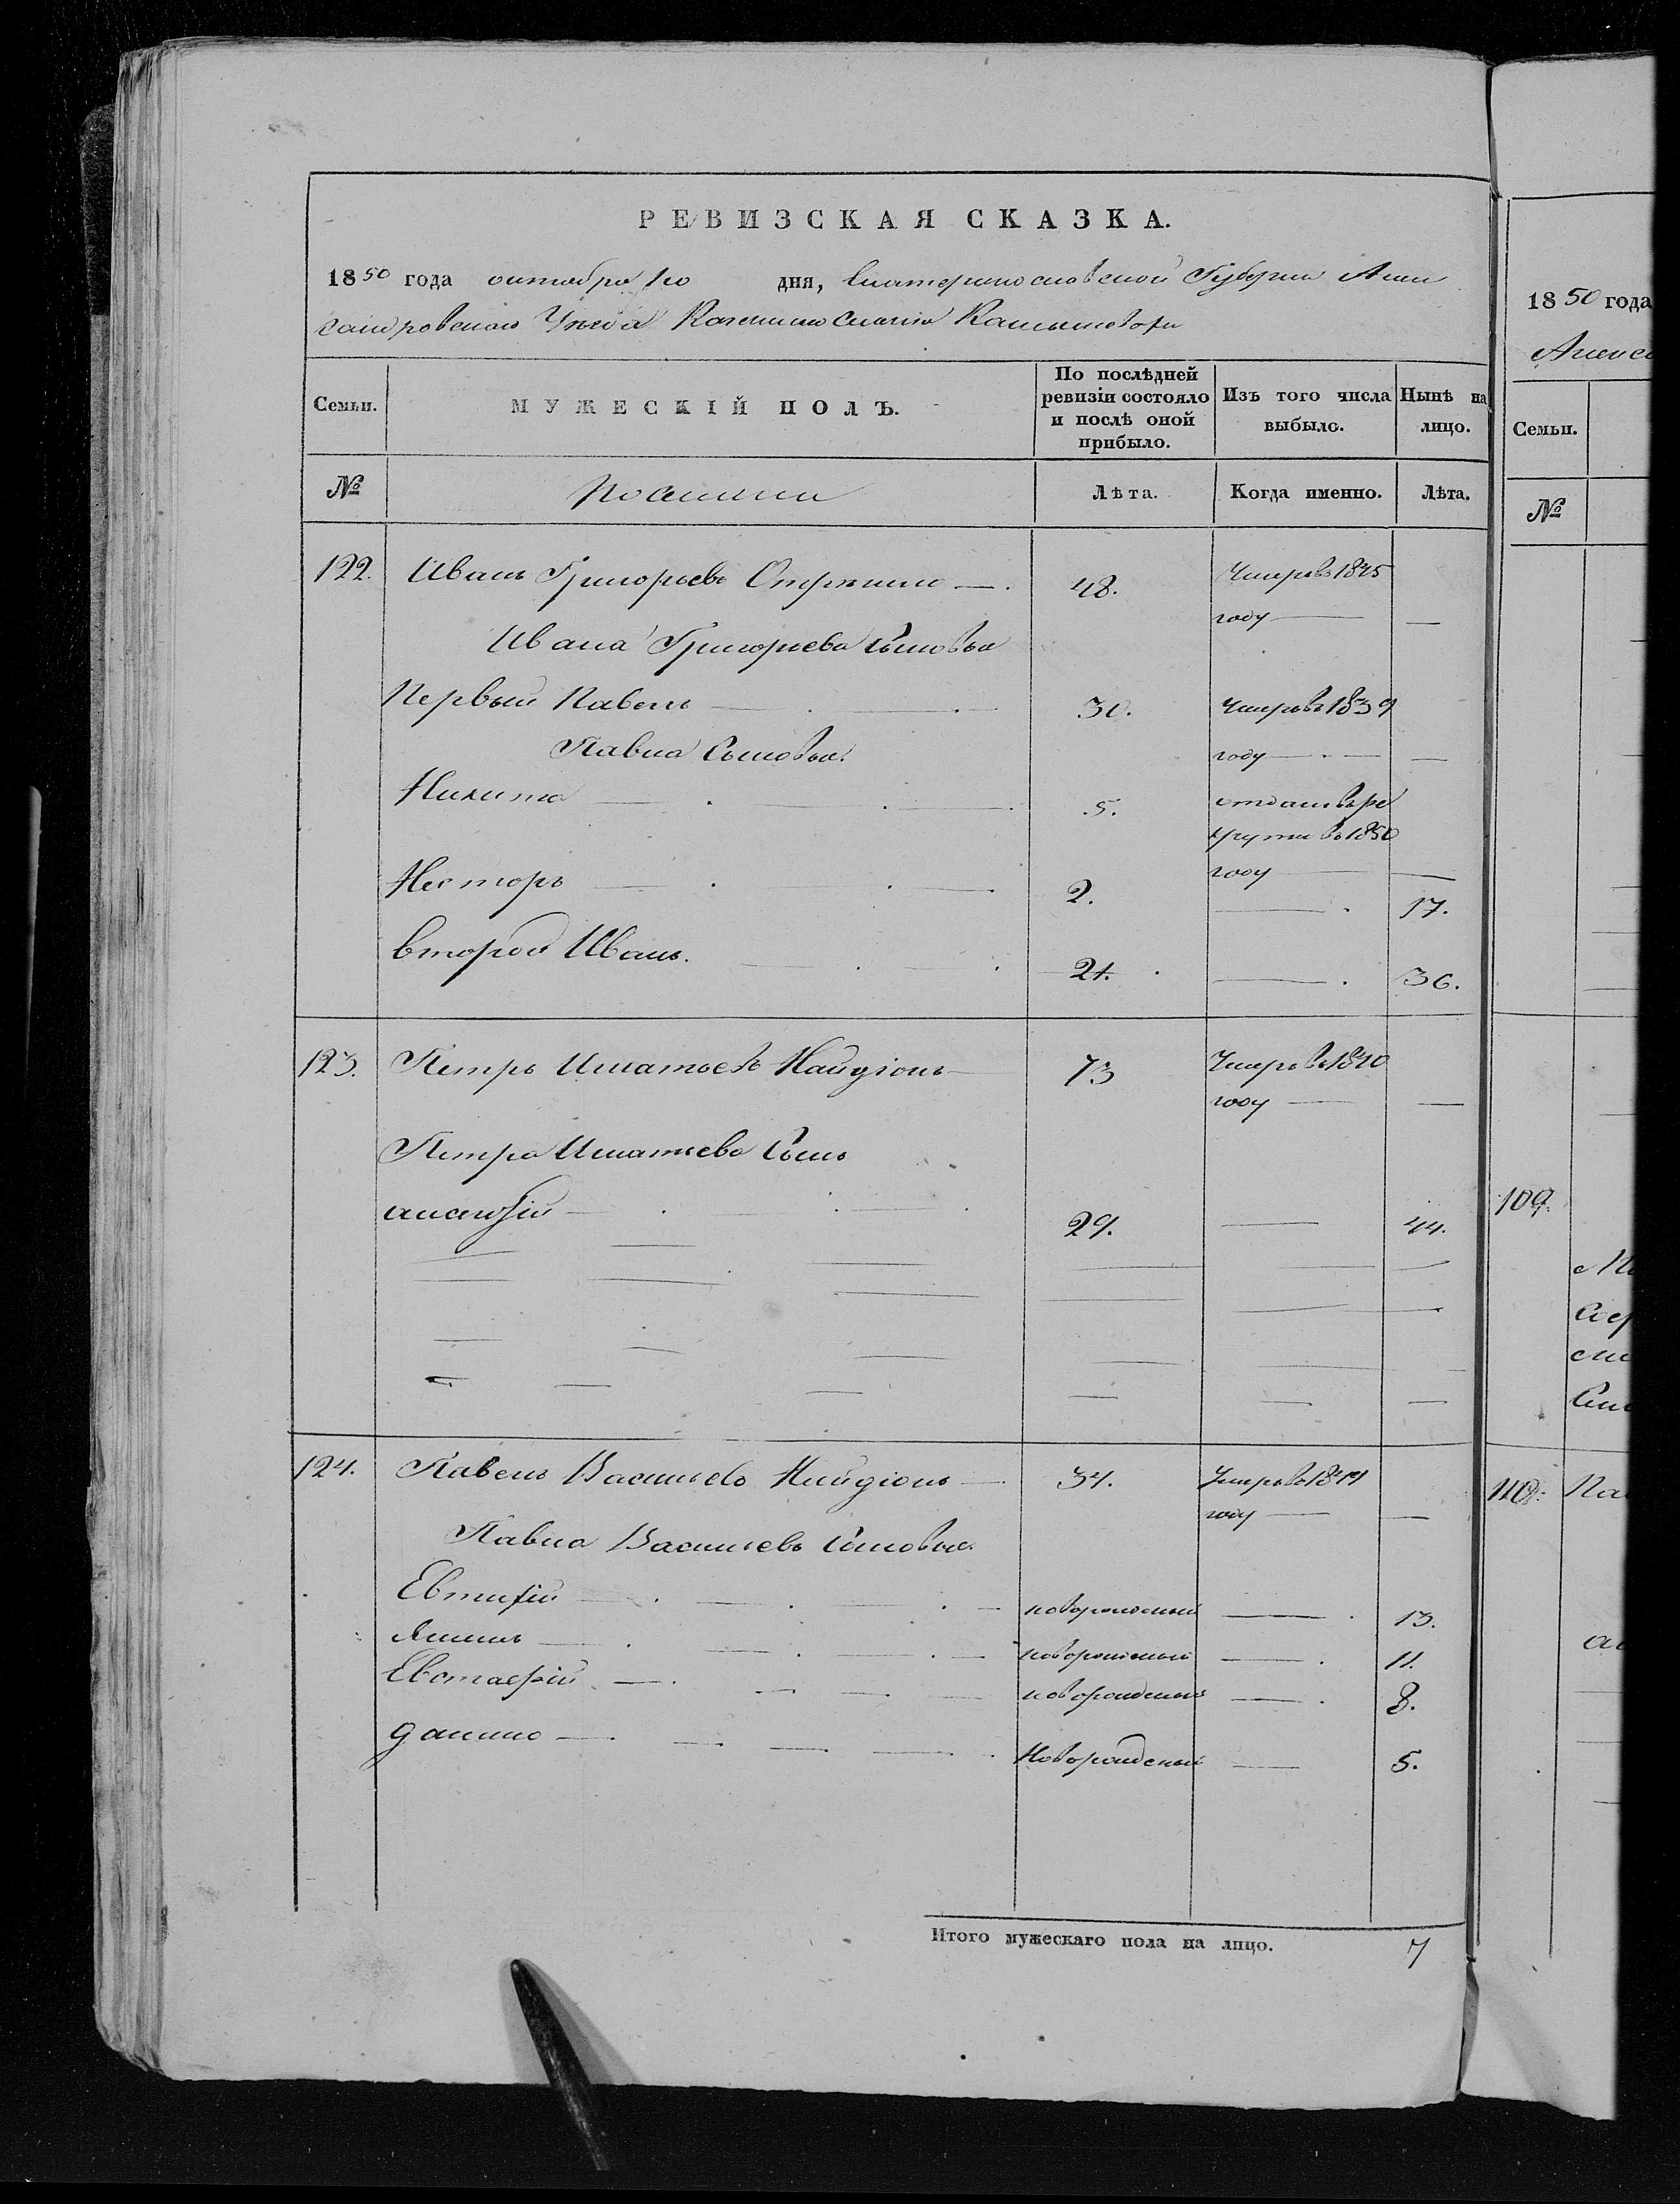 РЕВИЗСКАЯ СКАЗКА.
1850 года октября 10 дня, Екатеринославской Губернии Алек
сандровского Уѣзда Казенного Селенія
Семьи.
МУЖЕСКІЙ ПОЛЪ.
По послѣдней ревизіи состояло и послѣ оной прибыло.
Изъ того числа выбыло.
Нынѣ на лицо.
№
Лѣта.
Когда именно.
Лѣта.
122. Иванъ Григорьевъ 48. Умеръ въ 1845
году — —
Ивана Григорьева сыновья
Первый Павелъ 30. Умеръ въ 1839
Павла сыновья году — —
Никита 5. отданъ въ ре
круты въ 1850
году — —
Несторъ 2. — 17.
второй Иванъ. 21. — 36.
123. Петръ Игнатьевъ 73 Умеръ въ 1840
году — —
Петра Игнатьева сынъ
Алексѣй 29. — 44.
124. Павелъ Васильевъ 34. Умеръ въ
году — —
Павла Васильевъ сыновья
Евтифій новорожденый — 13.
новорожденый — 11.
Евстафій новорожденый — 8.
данило Новорожденый — 5.
Итого мужескаго пола на лицо. 7
1850 года
Алекса
Семьи.
№
109.
110.